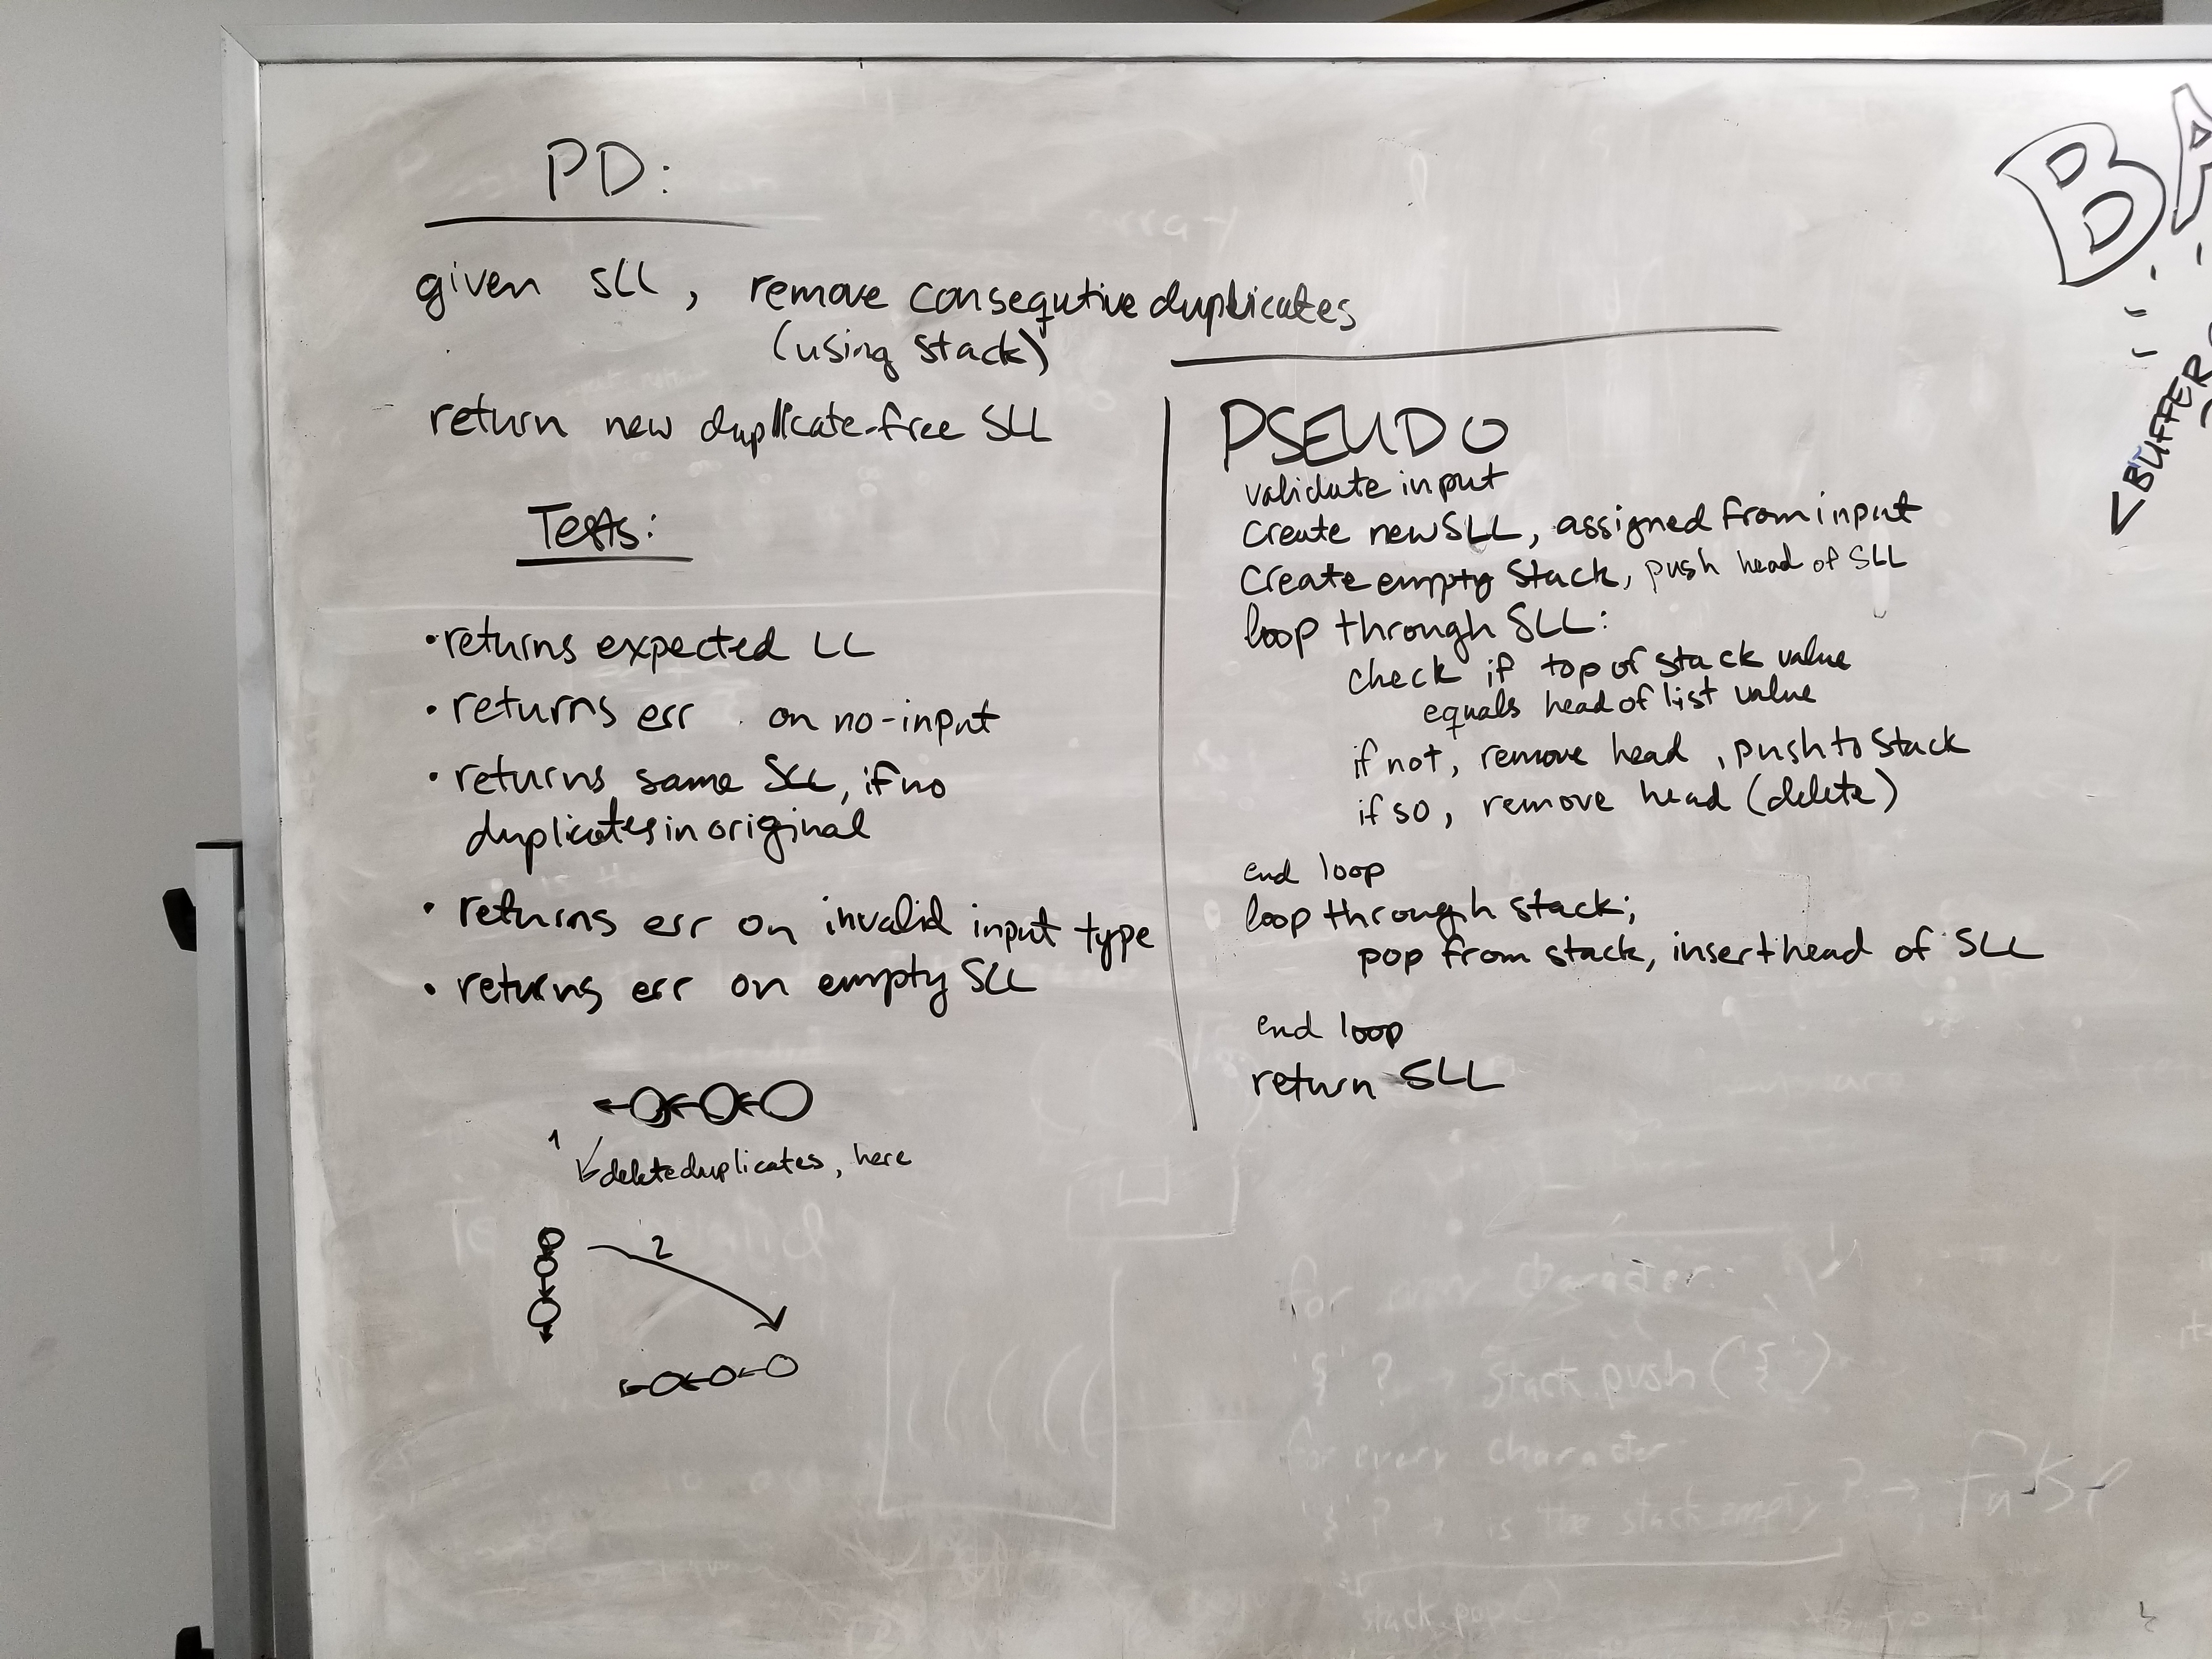 PD:
given SLL, remove consequtive duplicates
(using stack)
return new duplicate-free SLL
Tests:
• returns expected LL
• returns err on no-input
• returns same SLL, if no
duplicates in original
• returns err on invalid input type
• returns err on empty SLL
1
delete duplicates, here
2
PSEUDO
validate input
Create new SLL, assigned from input
Create empty stack, push head of SLL
loop through SLL:
check if top of stack value
equals head of list value
if not, remove head, push to stack
if so, remove head (delete)
end loop
loop through stack;
pop from stack, insert head of SLL
end loop
return SLL
BA
BUFFER
for every character
'{' ? → stack.push('{')
for every character
'}' ? → is the stack empty? →
stack.pop()